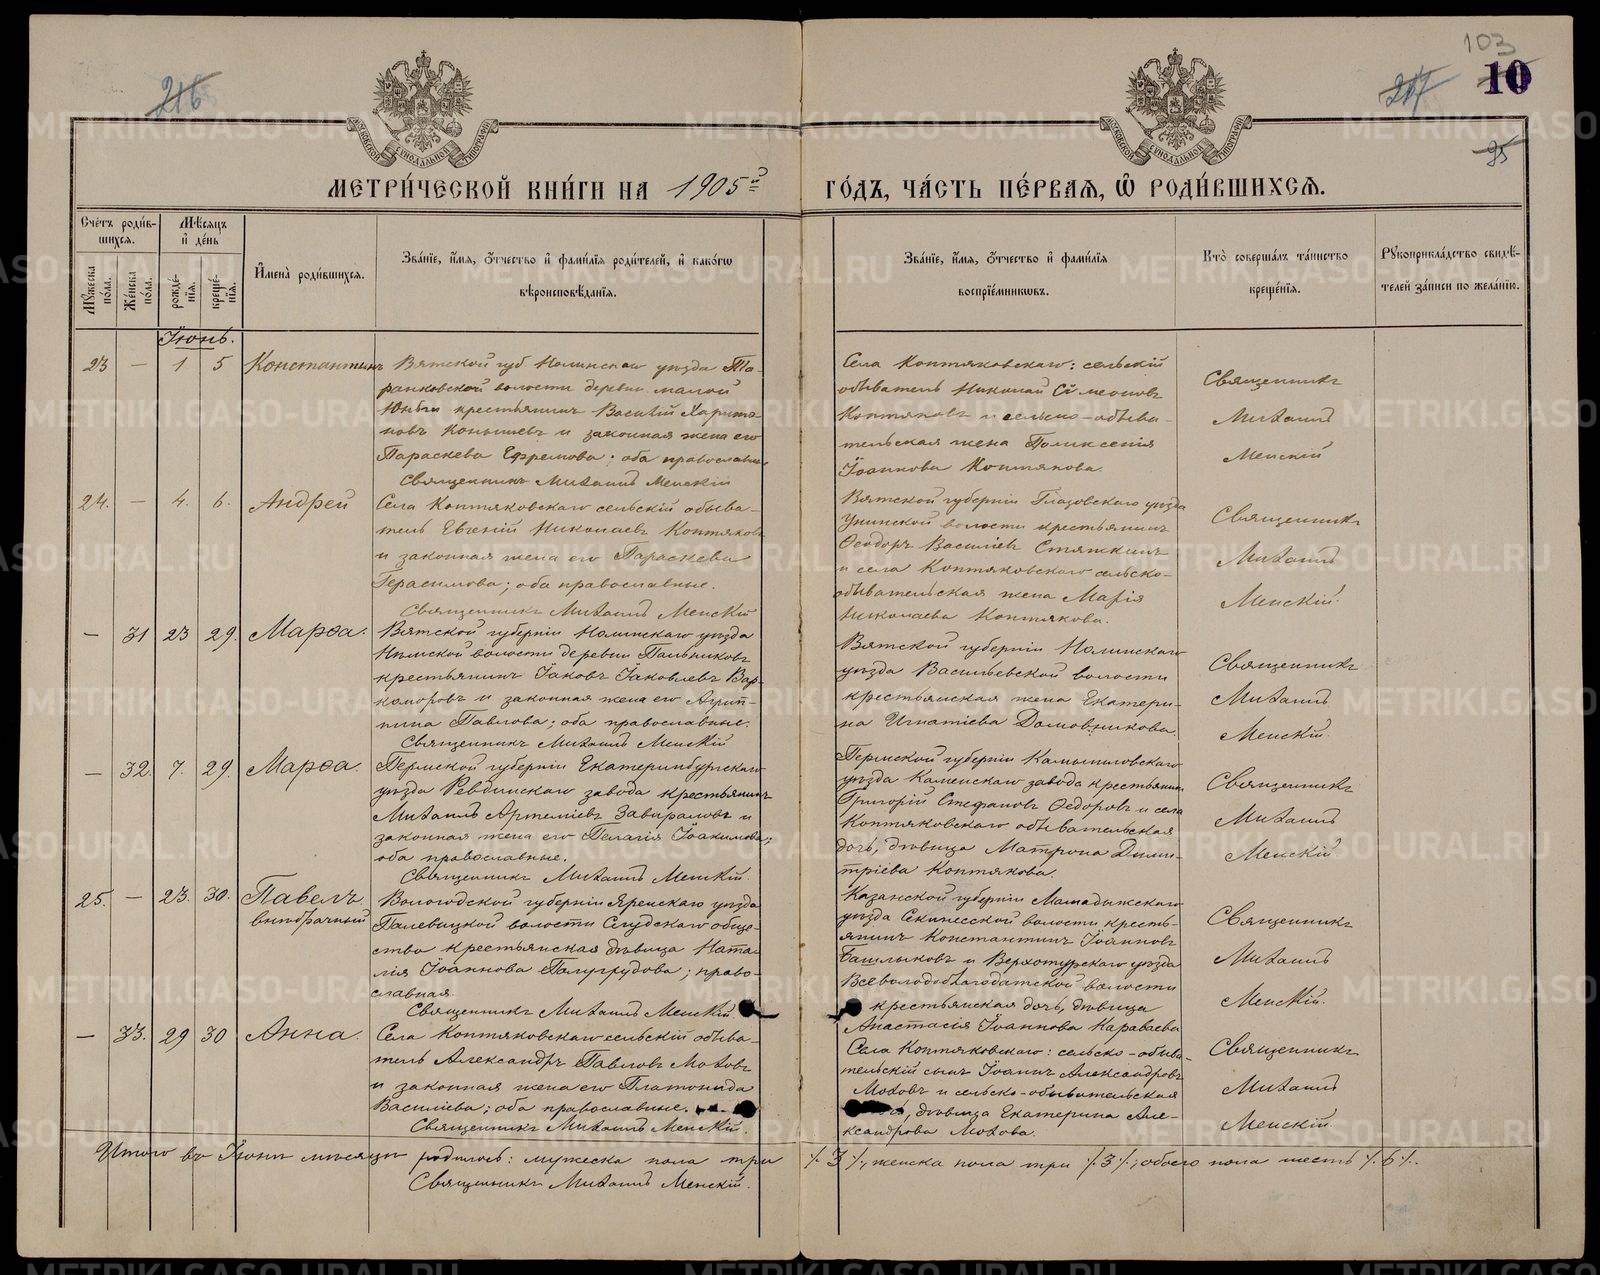 103
10
216
217
95
МОСКОВСКОЙ СѴНОДАЛЬНОЙ ТИПОГРАФИИ
МОСКОВСКОЙ СѴНОДАЛЬНОЙ ТИПОГРАФИИ
МЕТРИ́ЧЕСКОЙ КНИ́ГИ НА 1905й ГО́ДЪ, ЧА́СТЬ ПЕ́РВАѦ, Ѽ РОДИ́ВШИХСѦ.
Сче́тъ роди́в-
шихсѧ.
Мѣ́сѧцъ
и҆ де́нь
Мꙋ́жеска по́ла.
Же́нска по́ла.
рожде́-нїѧ.
креще́-нїѧ.
И҆мена̀ роди́вшихсѧ.
Зва́нїе, и҆́мѧ, ѻ҆́тчество и҆ фами́лїѧ роди́телей, и҆ како́гѡ
вѣроисповѣ́данїѧ.
Зва́нїе, и҆́мѧ, ѻ҆́тчество и҆ фами́лїѧ
воспрїе́мникѡвъ.
Кто̀ соверша́лъ та́инство
креще́нїѧ.
Рꙋкоприкла́дство свидѣ́-
телей за́писи по жела́нїю.
Іюнь.
23 — 1 5 Константинъ
Вятской губ Нолинскаго уѣзда Та-
ранковской волости деревни малой
Юнъги крестьянинъ Василій Харито-
новъ Конышевъ и законная жена его
Параскева Ефремова; оба православные
Священникъ Михаилъ Менскій
Села Коптяковскаго: сельскій
обыватель Николай Симеоновъ
Коптяковъ и сельско-обыва-
тельская жена Поликсенія
Іоаннова Коптякова.
Священникъ
Михаилъ
Менскій
24. — 4. 6. Андрей
Села Коптяковскаго сельскій обыва-
тель Евгеній Николаевъ Коптяковъ
и законная жена его Параскева
Герасимова; оба православные.
Священникъ Михаилъ Менскій
Вятской губерніи Глазовскаго уѣзда
Унинской волости крестьянинъ
Ѳеодоръ Василіевъ Стяжкинъ
и села Коптяковскаго сельско-
обывательская жена Марія
Николаева Коптякова.
Священникъ
Михаилъ
Менскій.
— 31 23 29. Марѳа.
Вятской губерніи Нолинскаго уѣзда
Нѣмской волости деревни Пальниковъ
крестьянинъ Іаковъ Іаковлевъ Вар-
коморовъ и законная жена его Агрип-
пина Павлова; оба православные.
Священникъ Михаилъ Менскій
Вятской губерніи Нолинскаго
уѣзда Васильевской волости
крестьянская жена Екатери-
на Игнатіева Домовникова.
Священникъ
Михаилъ
Менскій.
— 32. 7. 29. Марѳа.
Пермской губерніи Екатеринбургскаго
уѣзда Ревдинскаго завода крестьянинъ
Михаилъ Артеміевъ Завираловъ и
законная жена его Пелагія Іоакимова;
оба православные.
Священникъ Михаилъ Менскій.
Пермской губерніи Камышловскаго
уѣзда Каменскаго завода крестьянинъ
Григорій Стефановъ Ѳедоровъ и села
Коптяковскаго обывательская
дочь, дѣвица Матрона Дими-
тріева Коптякова.
Священникъ
Михаилъ
Менскій.
25. — 23. 30. Павелъ
внѣбрачный
Вологодской губерніи Яренскаго уѣзда
Палевицкой волости Слудскаго обще-
ства крестьянская дѣвица Ната-
лія Іоаннова Полугрудова; право-
славная.
Священникъ Михаилъ Менскій
Казанской губерніи Мамадыжскаго
уѣзда Секинесской волости кресть-
янинъ Константинъ Іоанновъ
Башлыковъ и Верхотурскаго уѣзда
Всеволодоблагодатской волости
крестьянская дочь, дѣвица
Анастасія Іоаннова Караваева
Священникъ
Михаилъ
Менскій.
— 33. 29 30 Анна.
Села Коптяковскаго сельскій обыва-
тель Александръ Павловъ Моховъ
и законная жена его Платонида
Василіева; оба православные.
Священникъ Михаилъ Менскій.
Села Коптяковскаго: сельско-обыва-
тельскій сынъ Іоаннъ Александровъ
Моховъ и сельско-обывательская
дѣвица Екатерина Але-
ксандрова Мохова.
Священникъ
Михаилъ
Менскій.
Итого въ Іюнѣ мѣсяцѣ родилось: мужеска пола три ٪ 3 ٪, женска пола три ٪ 3 ٪; обоего пола шесть ٪ 6 ٪.
Священникъ Михаилъ Менскій.
METRIKI.GASO-URAL.RU